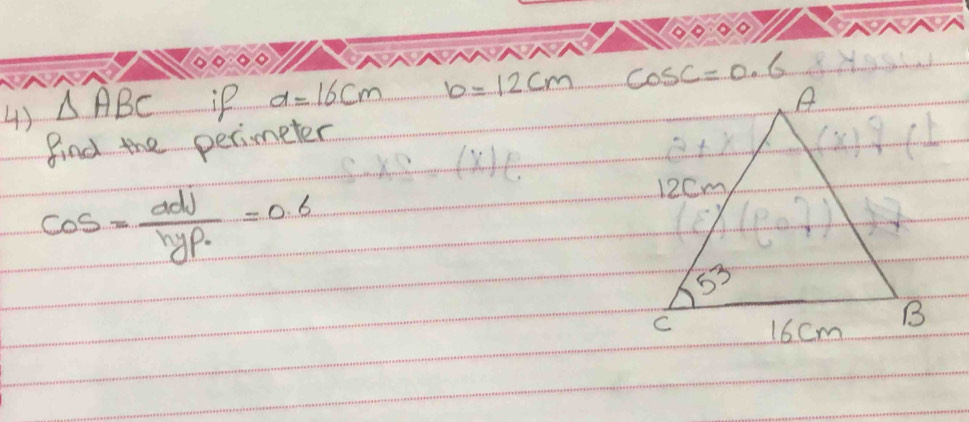 4) Δ ABC if a=16Cm b=12Cm CosC=0.6
find the perimeter
cos = adj/hyp. = 0.6
A
12Cm
53
C
16Cm
B